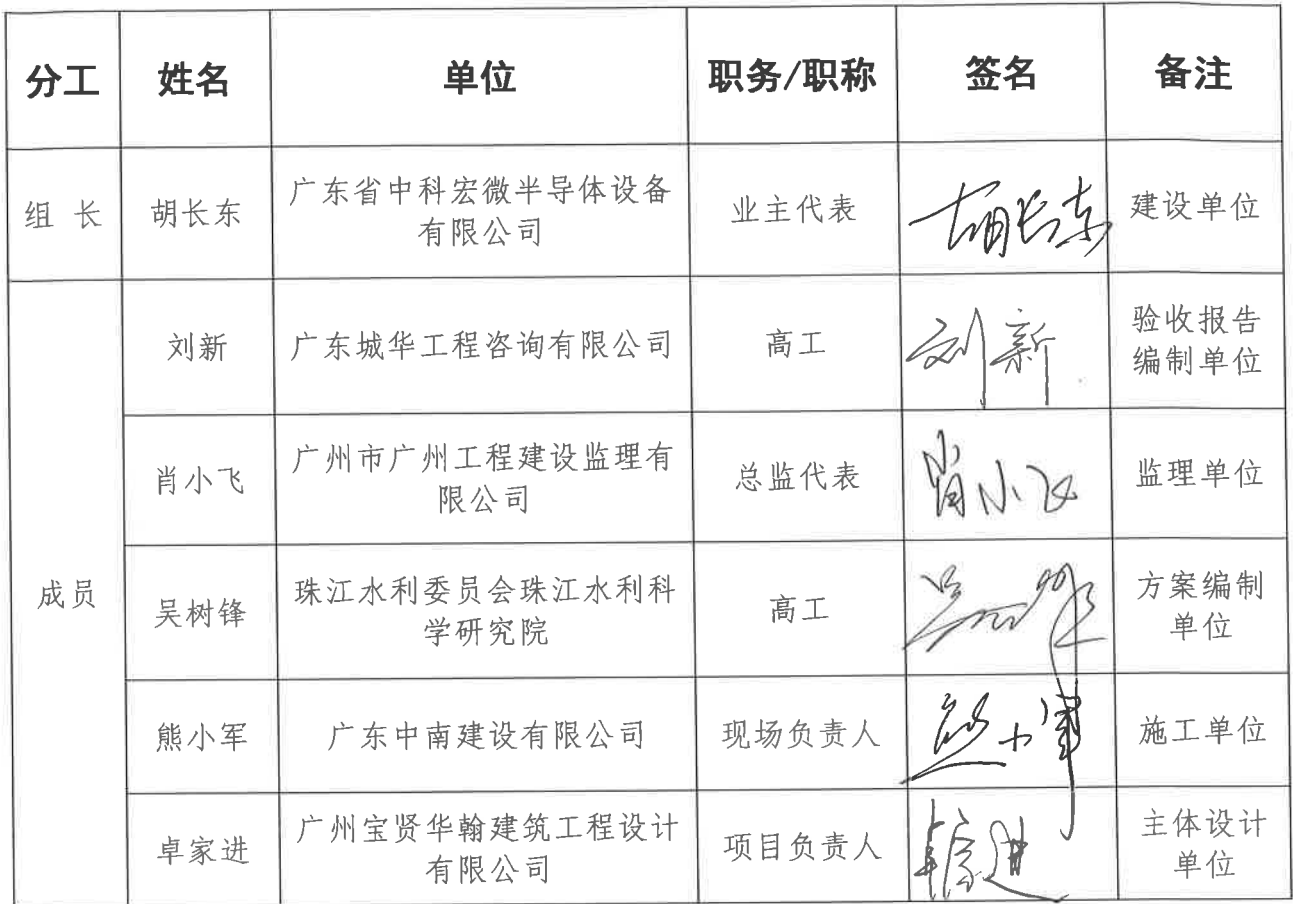 分工 姓名 单位 职务/职称 签名 备注
组 长 胡长东 广东省中科宏微半导体设备 业主代表 胡长东 建设单位
有限公司
刘新 广东城华工程咨询有限公司 高工 刘新 验收报告
编制单位
肖小飞 广州市广州工程建设监理有 总监代表 肖小飞 监理单位
限公司
成员 吴树锋 珠江水利委员会珠江水利科 高工 吴树锋 方案编制
学研究院 单位
熊小军 广东中南建设有限公司 现场负责人 熊小军 施工单位
卓家进 广州宝贤华翰建筑工程设计 项目负责人 卓家进 主体设计
有限公司 单位